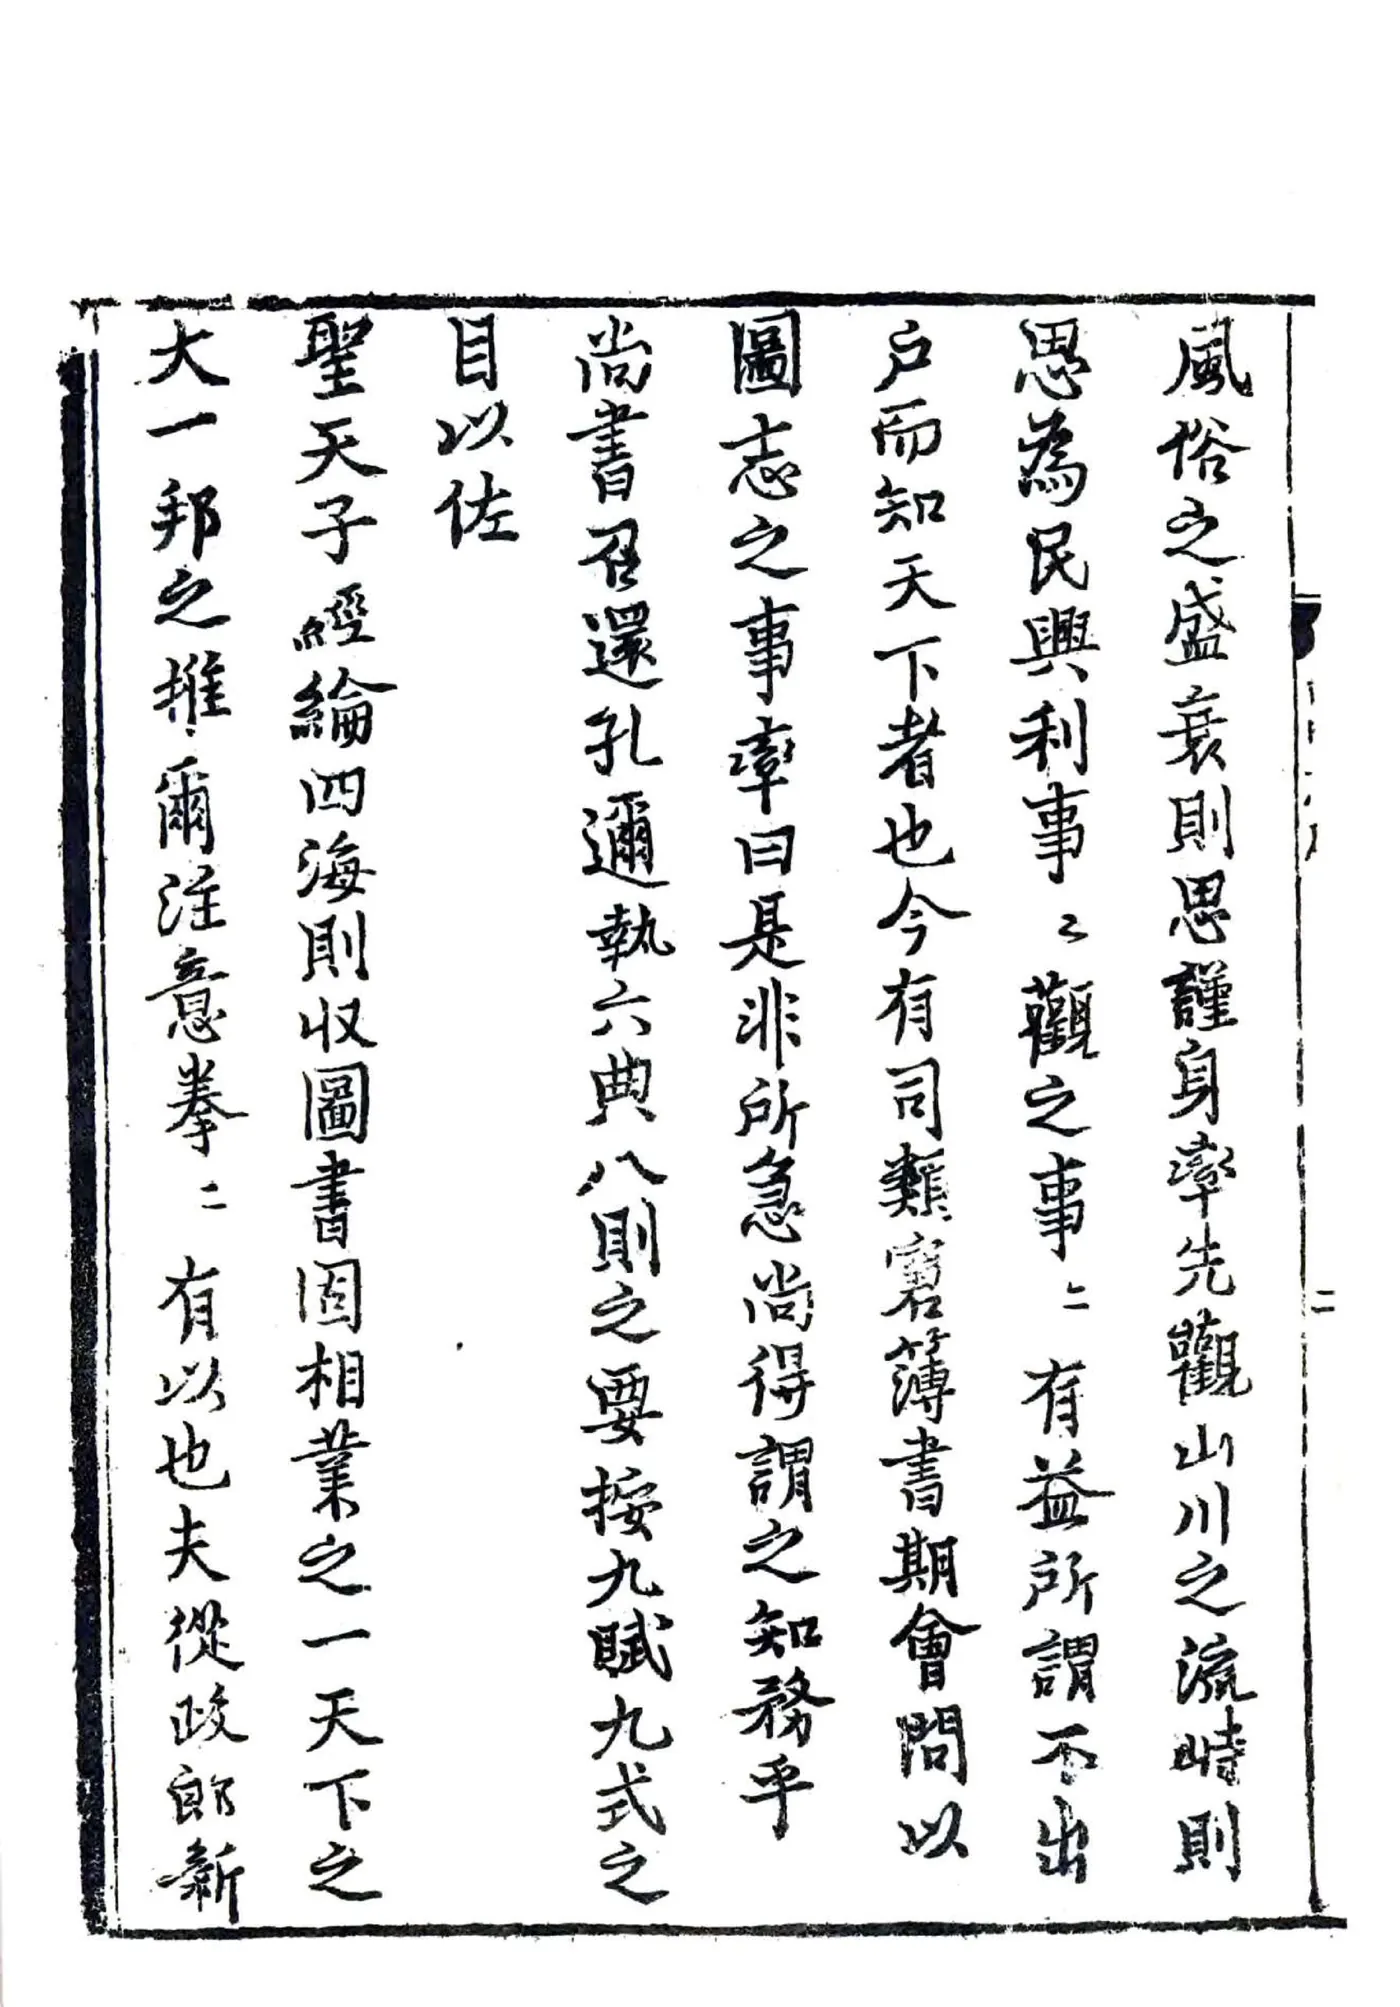 風俗之盛衰則思謹身率先觀山川之流峙則
思為民興利事〻觀之事〻有益所謂不出
户而知天下者也今有司類窘簿書期會問以
圖志之事率曰是非所急尚得謂之知務乎
尚書召還孔邇執六典八則之要按九賦九式之
目以佐
聖天子經綸四海則收圖書固相業之一天下之
大一邦之推爾注意拳〻有以也夫從政郎新
二